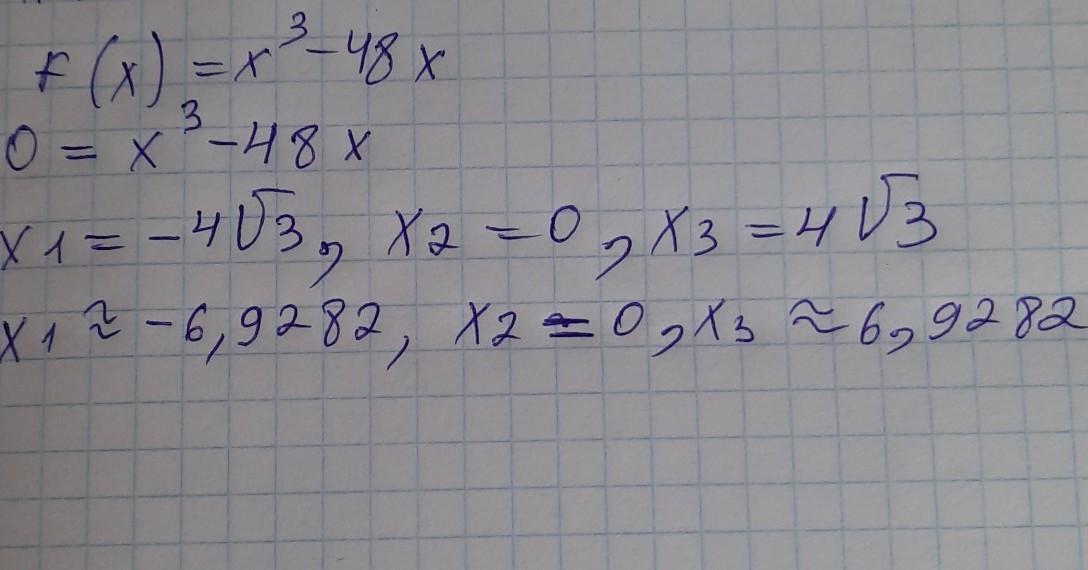 f(x) = x³ - 48x
0 = x³ - 48x
x1 = -4√3, x2 = 0, x3 = 4√3
x1 ≈ -6,9282, x2 = 0, x3 ≈ 6,9282